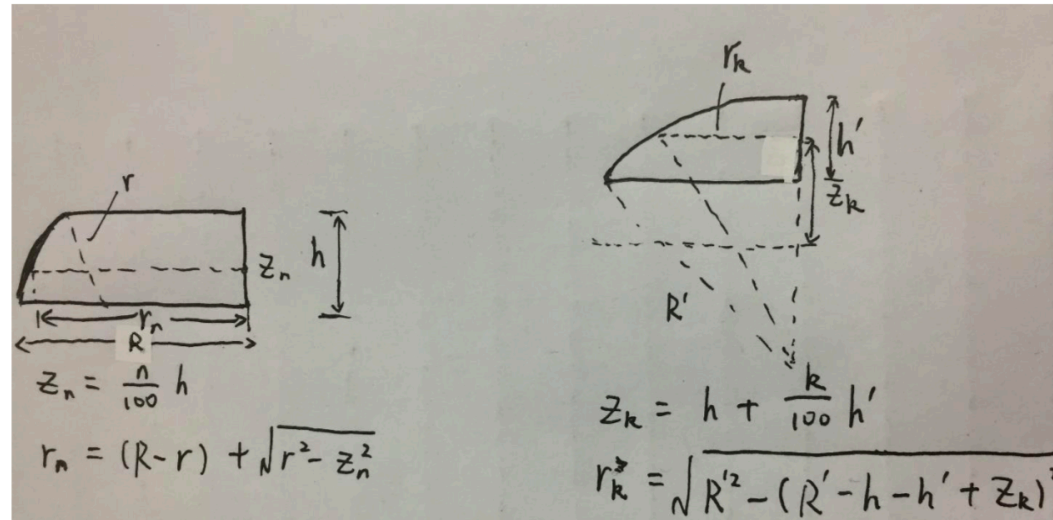 r
zₙ
h
rₙ
R
zₙ = n/100 h
rₙ = (R-r) + √(r² - zₙ²)
rₖ
h'
zₖ
R'
zₖ = h + k/100 h'
rₖ = √(R'² - (R' - h - h' + zₖ)²